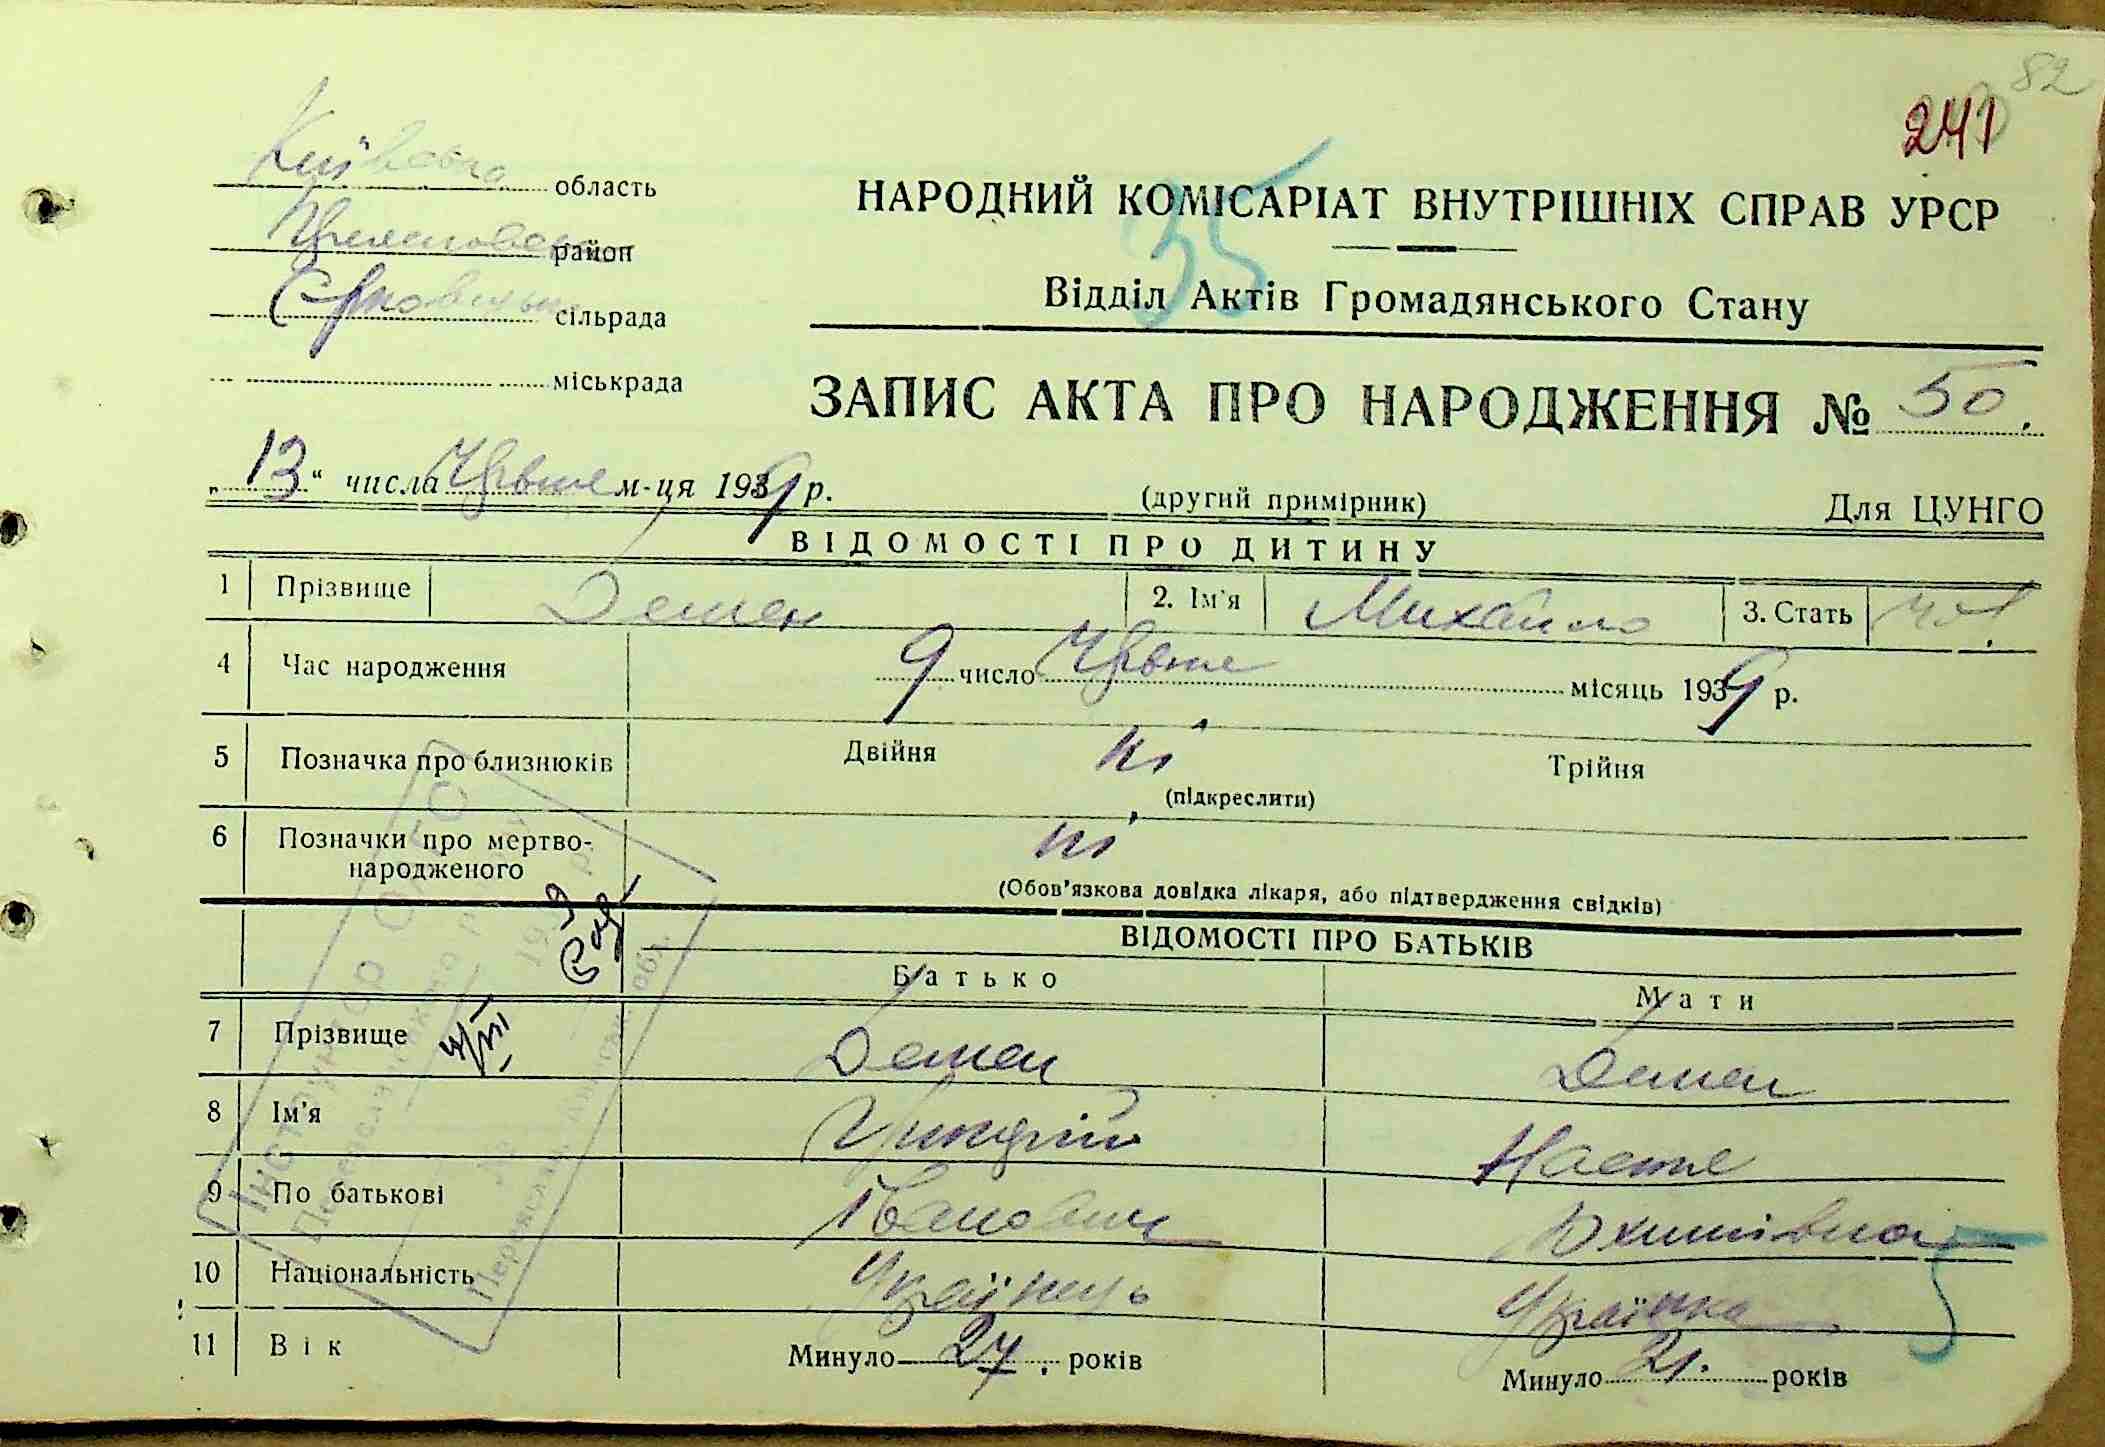 82
241
Київська область
район
сільрада
міськрада
35
НАРОДНИЙ КОМІСАРІАТ ВНУТРІШНІХ СПРАВ УРСР
Відділ Актів Громадянського Стану
ЗАПИС АКТА ПРО НАРОДЖЕННЯ № 50.
„13“ числа Червне м-ця 1939 р.
(другий примірник)
Для ЦУНГО
ВІДОМОСТІ ПРО ДИТИНУ
1 Прізвище Демен 2. Ім'я Михайло 3. Стать чол.
4 Час народження 9 число Червне місяць 1939 р.
5 Позначка про близнюків Двійня ні Трійня
(підкреслити)
6 Позначки про мертво-
народженого ні
(Обов'язкова довідка лікаря, або підтвердження свідків)
ВІДОМОСТІ ПРО БАТЬКІВ
Батько Мати
7 Прізвище Демен Демен
8 Ім'я Настя
9 По батькові Іванович Юхимівна
10 Національність Українець Українка
11 Вік Минуло 27. років Минуло 21. років
Інструктор ОАГС